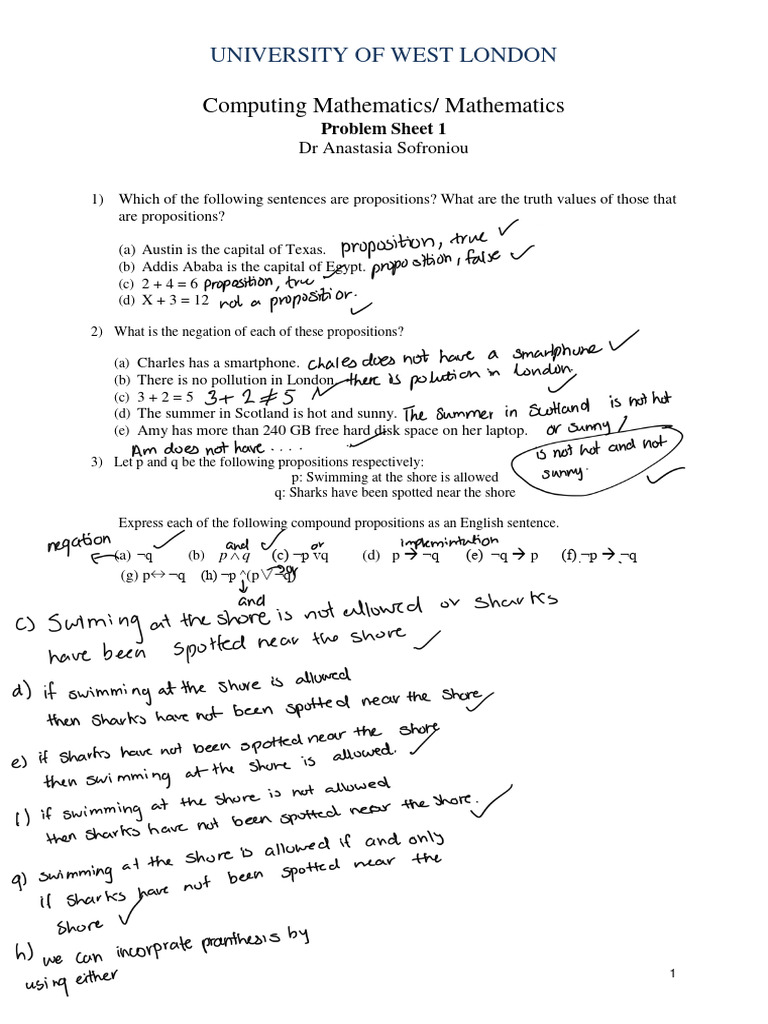 UNIVERSITY OF WEST LONDON
Computing Mathematics/ Mathematics
Problem Sheet 1
Dr Anastasia Sofroniou
1) Which of the following sentences are propositions? What are the truth values of those that
are propositions?
(a) Austin is the capital of Texas. proposition, true ✓
(b) Addis Ababa is the capital of Egypt. proposition, false ✓
(c) 2 + 4 = 6 proposition, true ✓
(d) X + 3 = 12 not a proposition. ✓
2) What is the negation of each of these propositions?
(a) Charles has a smartphone. chales does not have a smartphone ✓
(b) There is no pollution in London there is polution in london. ✓
(c) 3 + 2 = 5 3 + 2 ≠ 5 ✓
(d) The summer in Scotland is hot and sunny. The summer in Scotland is not hot
or sunny /
(e) Amy has more than 240 GB free hard disk space on her laptop.
Am does not have . . . . ✓
is not hot and not
sunny. ✓
3) Let p and q be the following propositions respectively:
p: Swimming at the shore is allowed
q: Sharks have been spotted near the shore
Express each of the following compound propositions as an English sentence.
negation and ✓ or
(a) ¬q (b) p ∧ q (c) ¬p ∨q (d) p → ¬q (e) ¬q → p (f) ¬p → ¬q
(g) p↔ ¬q (h) ¬p ^(p ∨ ¬q)
and
c) Swiming at the shore is not allowed or sharks
have been spotted near the shore ✓
d) if swimming at the shore is allowed
then sharks have not been spotted near the shore ✓
e) if sharks have not been spotted near the shore
then swimming at the shore is allowed. ✓
f) if swimming at the shore is not allowed
then sharks have not been spotted near the shore. ✓
g) swimming at the shore is allowed if and only
if sharks have not been spotted near the
shore ✓
h) we can incorprate pranthesis by
using either
1